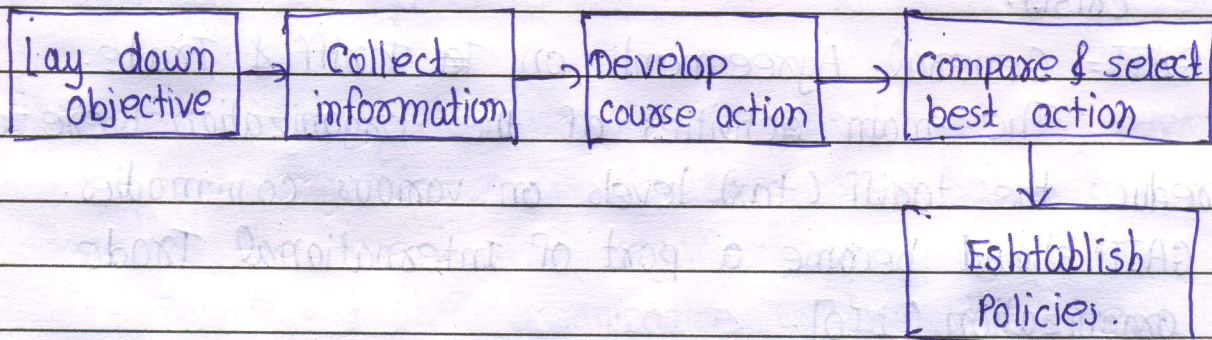 Lay down
Objective
Collect
information
Develop
course action
Compare & select
best action
Eshtablish
Policies.